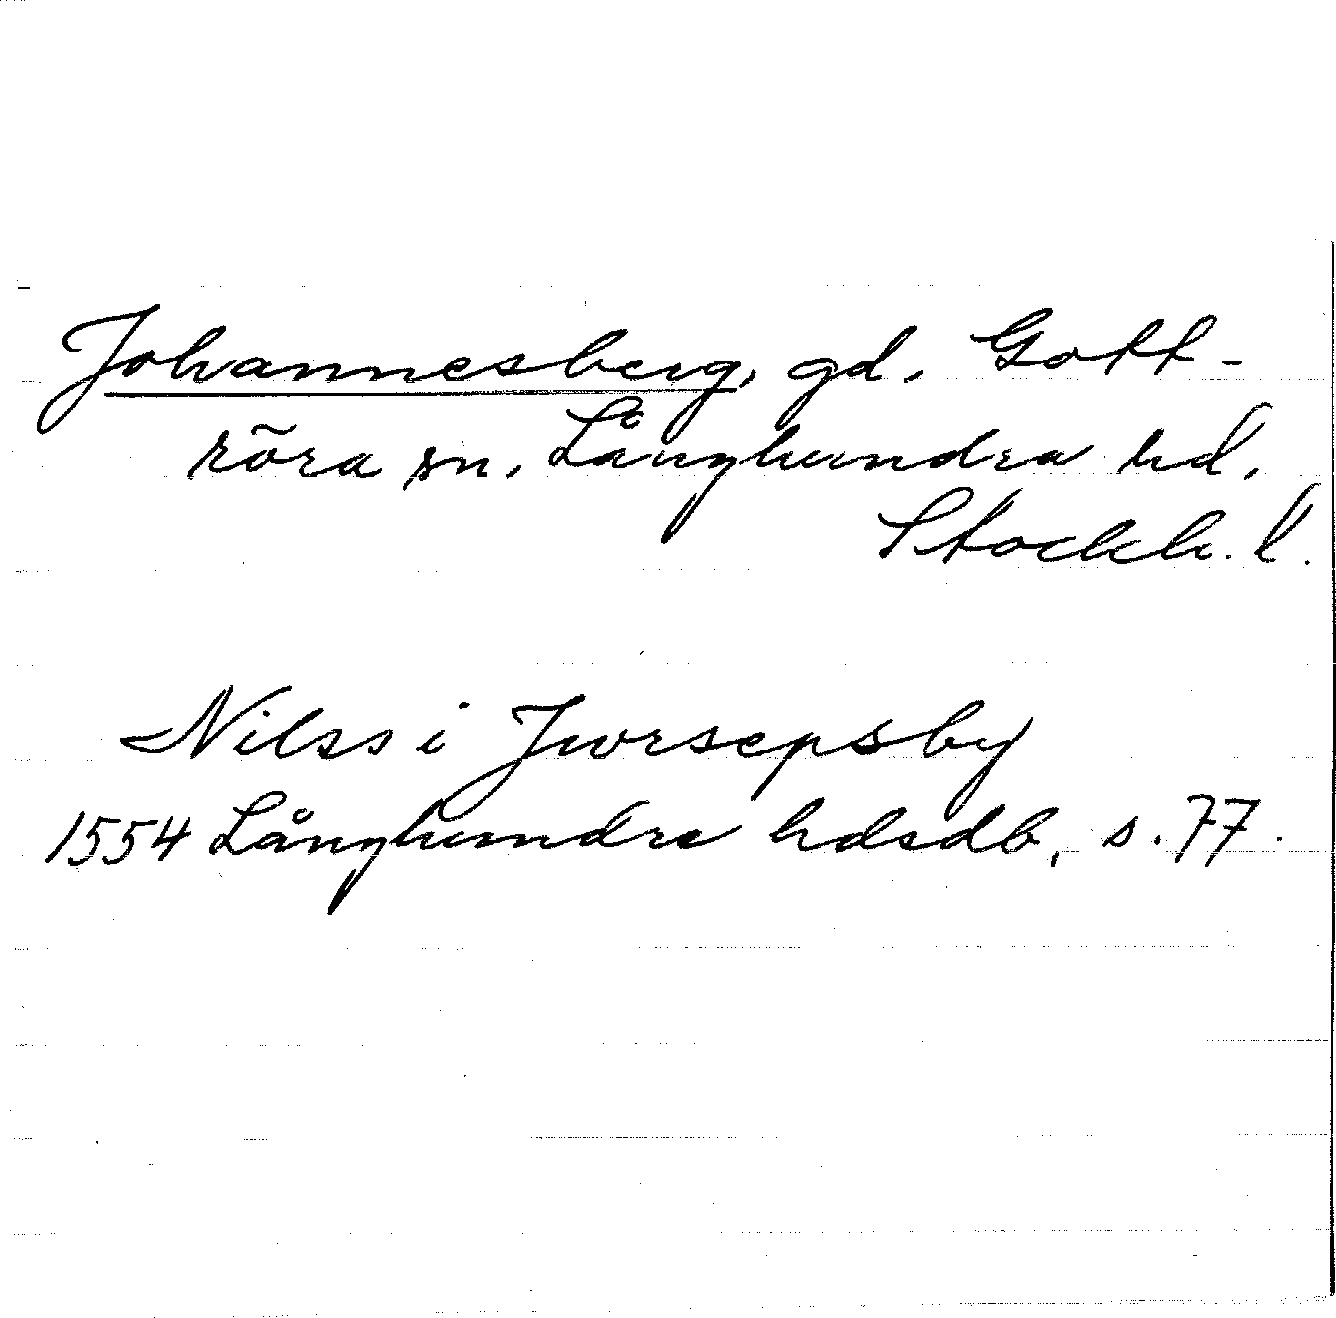 Johannesberg, gd, Gott-
röra sn, Långhundra hd,
Stockh. l.
Nilss i Jwrsepsby
1554 Långhundra hdsdb, s. 77.